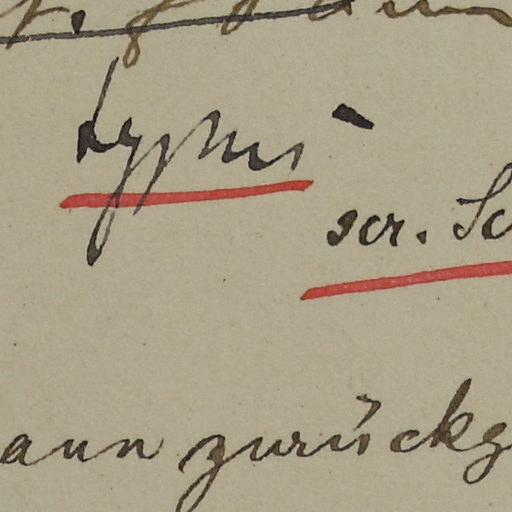 Typhus
scr. Sc
ann zurückg